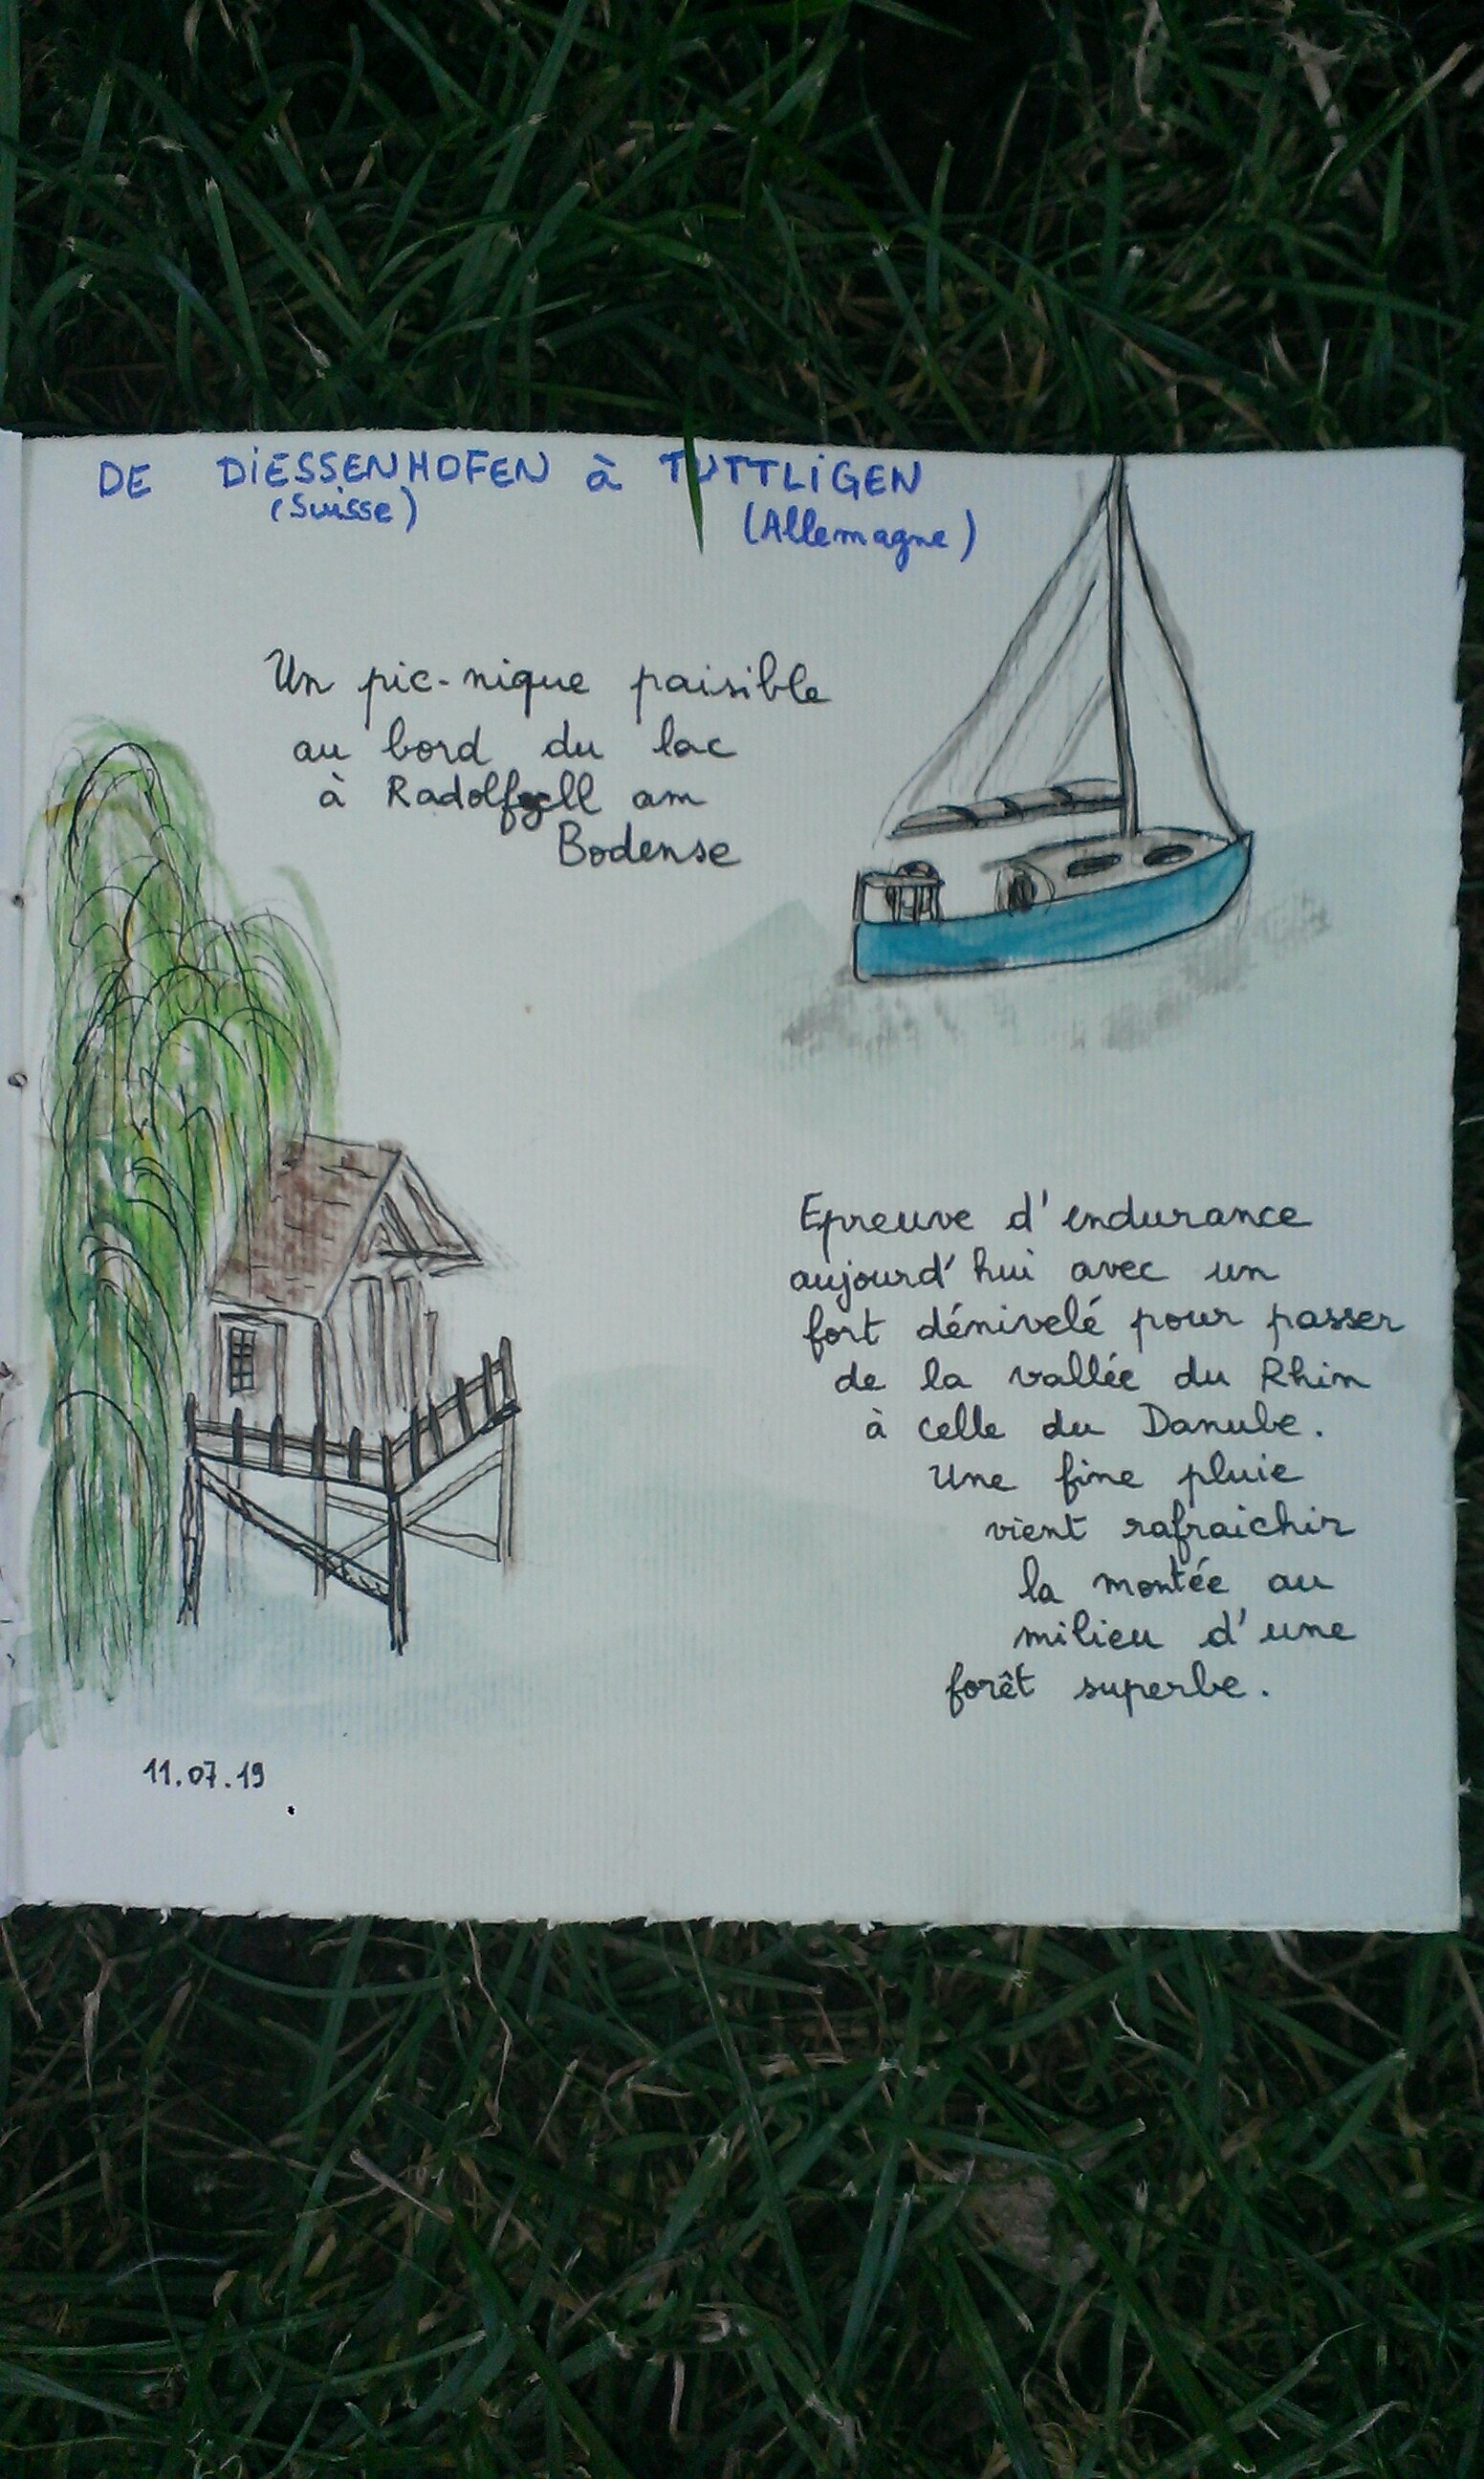 DE DiESSENHOFEN à TUTTLiGEN
(Suisse) (Allemagne)
Un pic-nique paisible
au bord du lac
à Radolfzell am
Bodense
Epreuve d'endurance
aujourd'hui avec un
fort dénivelé pour passer
de la vallée du Rhin
à celle du Danube.
Une fine pluie
vient rafraichir
la montée au
milieu d'une
forêt superbe.
11.07.19